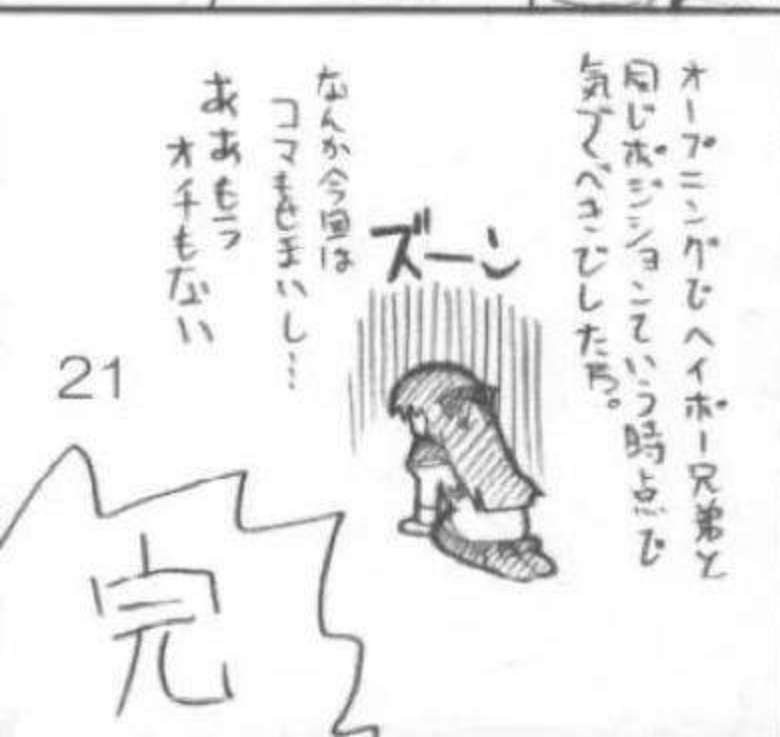 オープニングでヘイポー兄弟と
同じポジションていう時点で
気づくべきでしたね。
ズーン
なんか今回は
コマもせまいし…
ああもう
オチもない
21
完